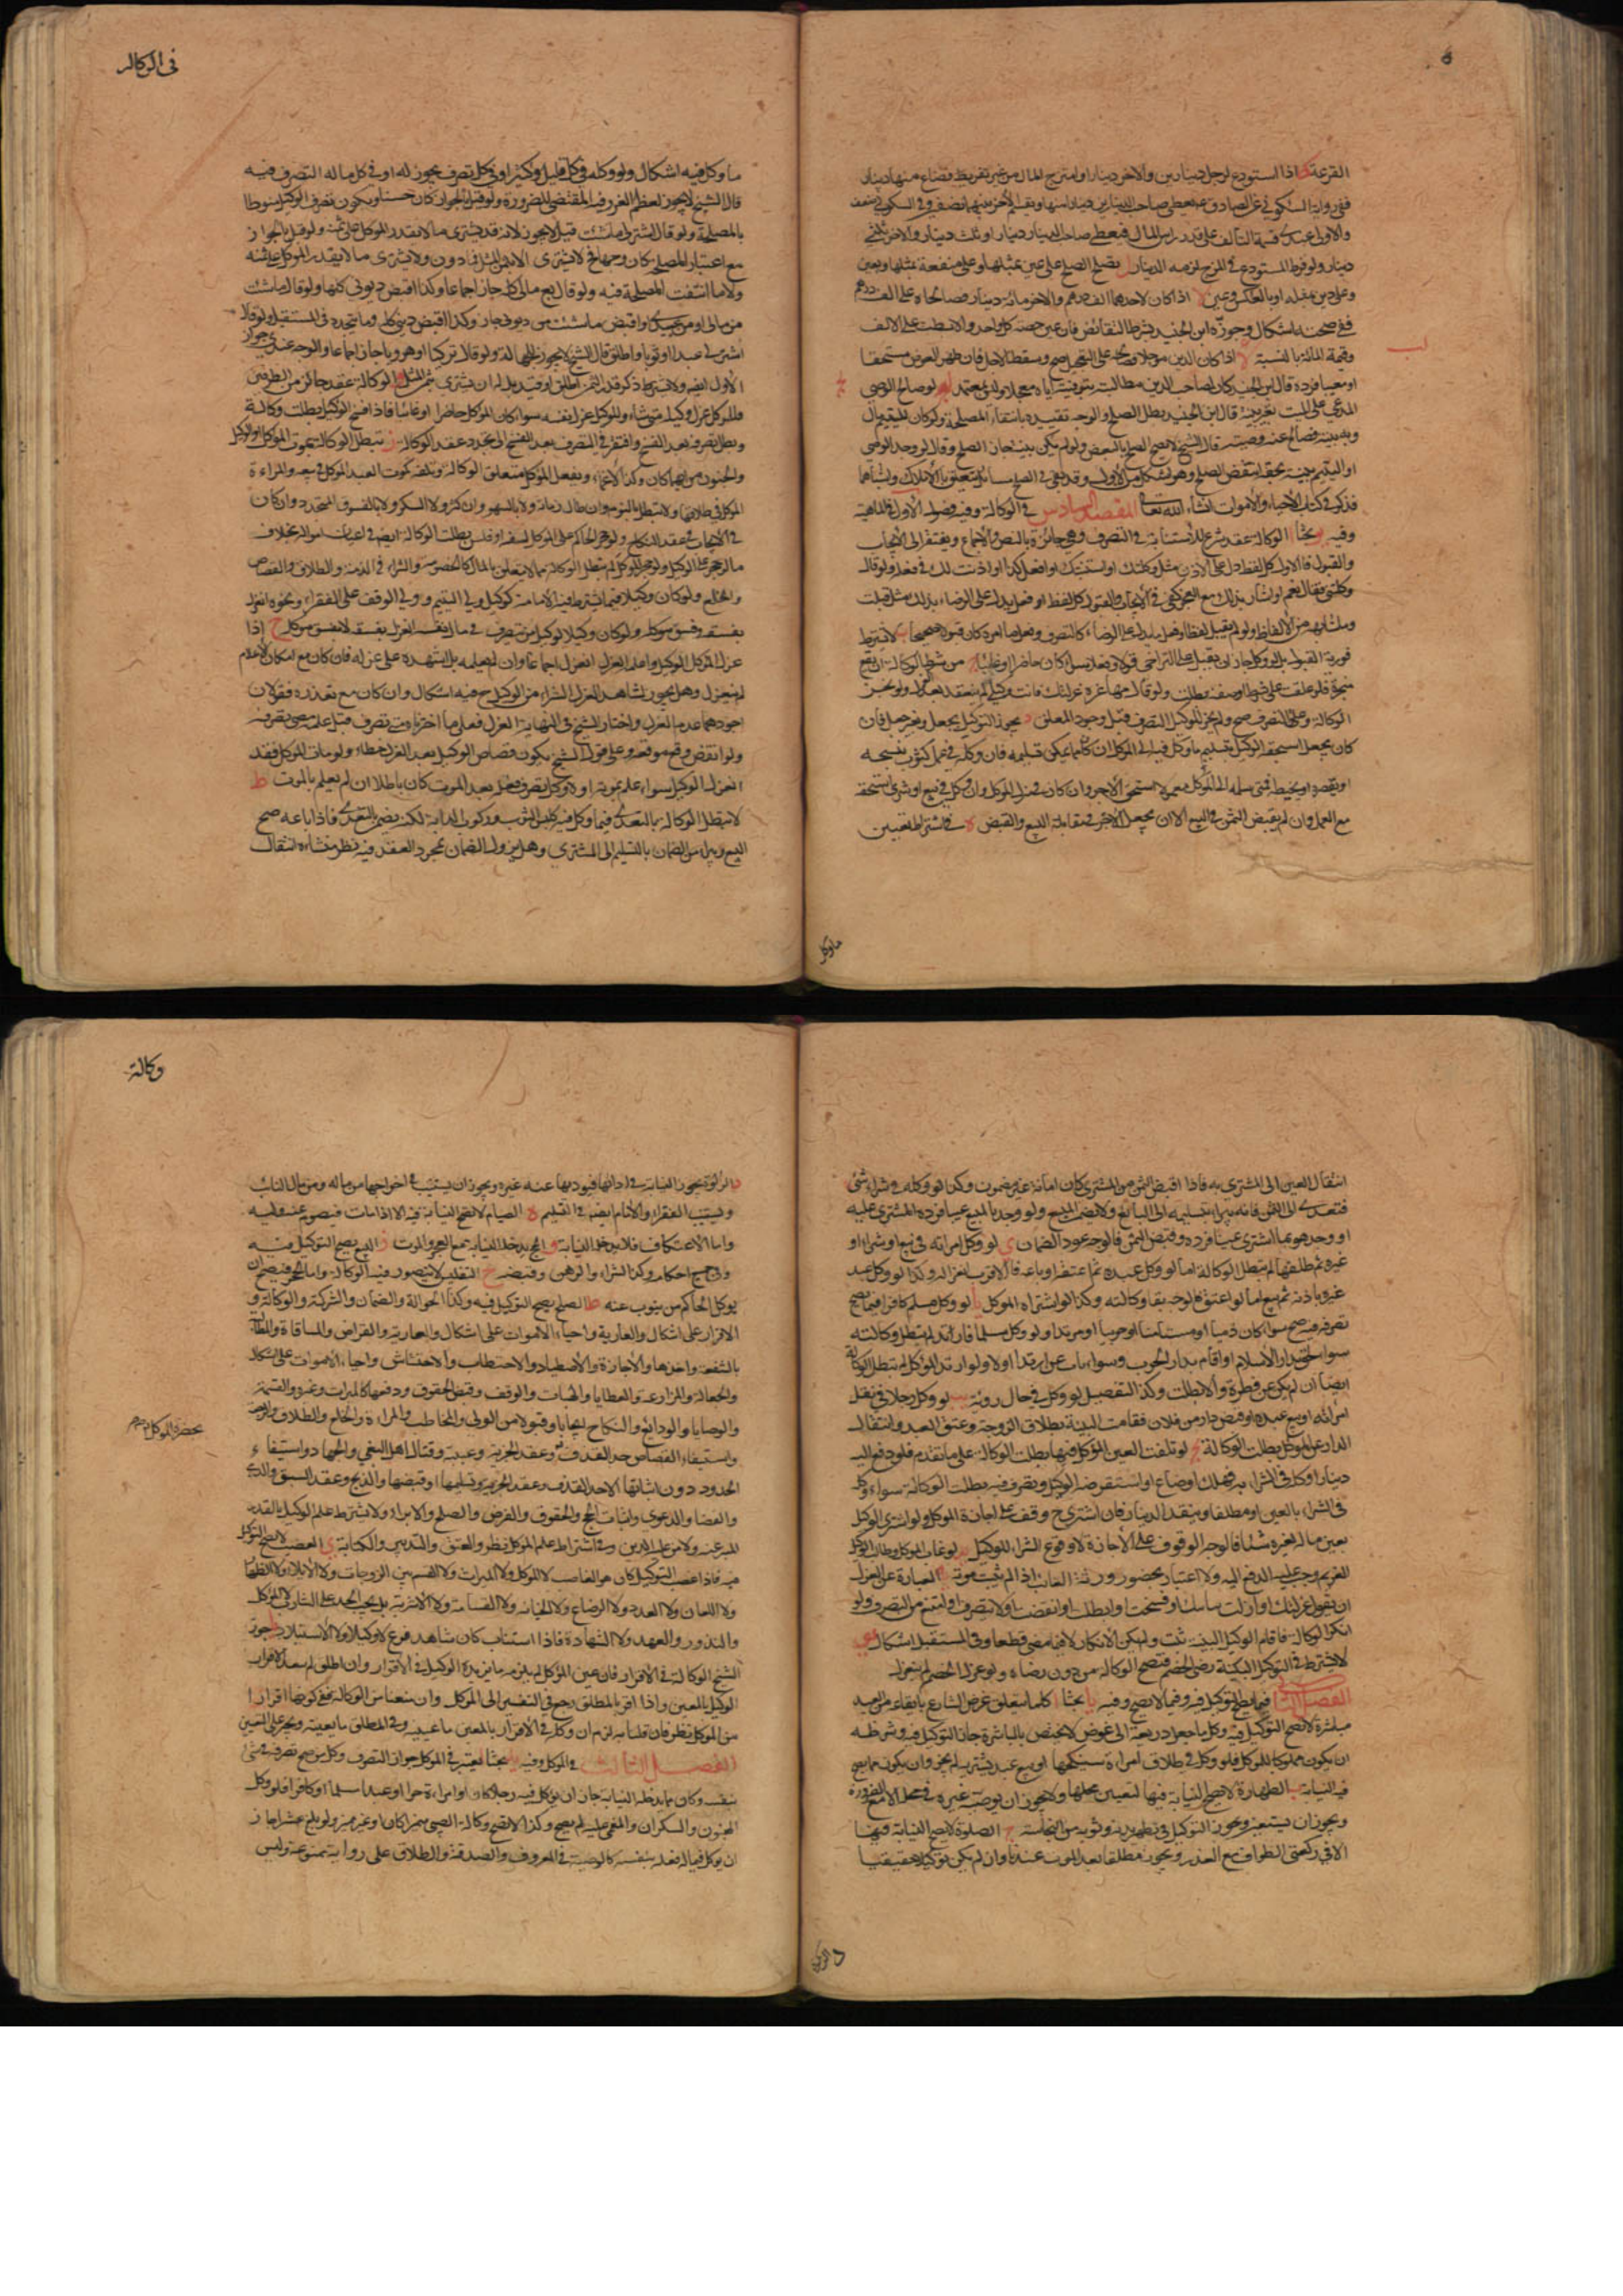 القرعة اذا استودع لرجل دينارين والاخر دينارا وامتزج المال من غير تفريط فضاع منها دينار
ففي رواية السكوني عن الصادق يعطي صاحب الدينارين دينارا منها ويقسم الاخر بينهما نصفين وفي السكوني ضعف
والاولى عندي قسمة التالف على قدر راس المال فيعطى صاحب الدينار دينار او ثلث دينار والاخر ثلثي
دينار ولو فرط المستودع في المزج لزمه الدينار يصح الصلح على عين بمثلها وعلى منفعة بمثلها وبعين
وعلى دين بمثله او بالعكس وعين اذا كان لاحدهما الف درهم والاخر مائة دينار فصالحاه على الف درهم
ففي صحته اشكال وجوزه ابن الجنيد بشرط التقابض فان عين حصة كل واحد والا بسطت على الالف
وقيمة المائة بالنسبة اذا كان الدين مؤجلا فصالحه على التعجيل صح وسقط الاجل فان ظهر العوض مستحقا
او معيبا فرده قال ابن الجنيد كان لصاحب الدين مطالبته بتوفيته اياه معجلا وليس بمعتمد لو صالح الوصي
المدعي على الميت بغير بينة قال ابن الجنيد يبطل الصلح والوجه تقييده بانتفاء المصلحة ولو كان لليتيم مال
وبه بينة فصالح عنه وصيه قال الشيخ لا يصح الصلح بالبعض ولو لم يكن بينة جاز الصلح وقال لو وجد الوصي
او اليتيم بينة بحقه انتقض الصلح وهو يشكل من الاول وقد بقي في الصلح مسائل تتعلق بالاملاك وانشاها
فذكر في كتاب الاحياء والاموات انشاء الله تعالى المقصد السادس في الوكالة وفيه فصول الاول في الماهية
وفيه بحثا الوكالة عقد شرع للاستنابة في التصرف وهي جائزة بالنص والاجماع ويفتقر الى الايجاب
والقبول فالاول كل لفظ دل على الاذن مثل وكلتك او استنبتك او افعل كذا او اذنت لك في فعله ولو قال
وكلتني فقال نعم او اشار بذلك مع العجز كفى في الايجاب والقبول كل لفظ او فعل يدل على الرضاء بذلك مثل قبلت
وما شابهه من الالفاظ ولو لم يقبل لفظا وفعل ما يدل على الرضاء كالتصرف وفعل ما امره كان قبولا صحيحا لا يشترط
فورية القبول بل لو وكله جاز ان يقبل على التراخي قولا وفعلا سواء كان حاضرا او غايبا من شرط الوكالة ان تقع
منجزة فلو علقت على شرط او صفة بطلت ولو قال مهما عزلتك فانت وكيلي لم ينعقد بعزله ولو نجز
الوكالة وعلق التصرف صح ولم يجز للوكيل التصرف قبل وجود المعلق يجوز التوكيل بجعل وبغير جعل فان
كان بجعل استحقه الوكيل بتسليم ما وكل فيه الى الموكل ان كان مما يمكن تسليمه فان وكله في عمل كثوب ينسجه
او يقصره او يخيطه فمتى سلمه الى الموكل معمولا استحق الاجر وان كان في منزل الموكل وان وكل في بيع او شرى استحقه
مع العمل وان لم يقبض الثمن في البيع الا ان يجعل الاجر في مقابلة البيع والقبض في اشتراط تعيين
ما وكل
في الوكالة
ما وكل فيه اشكال ولو وكله في كل قليل وكثير او في كل تصرف يجوز له او في كل ماله التصرف فيه
قال الشيخ لا يجوز لعظم الغرر فيه المقتضي للضرورة ولو قيل بالجواز كان حسنا ويكون تصرف الوكيل منوطا
بالمصلحة ولو قال اشتر لي ما شئت قيل لا يجوز لانه قد يشتري ما لا يقدر الموكل على ثمنه ولو قيل بالجواز
مع اعتبار المصلحة كان وجها فلا يشتري الا بثمن المثل فما دون ولا يشتري ما لا يقدر الموكل على ثمنه
ولا ما انتفت المصلحة فيه ولو قال بع مالي كله جاز اجماعا وكذا اقبض ديوني كلها ولو قال ما شئت
من مالي او من عبيدي او اقبض ما شئت من ديوني جاز وكذا اقبض ديني كله وما يتجدد في المستقبل ولو قال
اشتر لي عبدا او ثوبا واطلق قال الشيخ لا يجوز للجهالة ولو قال تركيا او هرويا جاز اجماعا والوجه عندي جواز
الاول ايضا ولا يشترط ذكر قدر الثمن اطلق او قيد بل له ان يشتري بثمن المثل الوكالة عقد جائز من الطرفين
فللموكل عزل وكيله متى شاء وللوكيل عزل نفسه سواء كان الموكل حاضرا او غائبا فاذا فسخ الوكيل بطلت وكالته
وبطل تصرفه بعد الفسخ وافتقر في التصرف بعد الفسخ الى تجدد عقد الوكالة تبطل الوكالة بموت الموكل والوكيل
والجنون من ايهما كان وكذا الاغماء وبفعل الموكل متعلق الوكالة وبتلفه كموت العبد الموكل في بيعه والمراءة
الموكل في طلاقها ولا تبطل بالنوم وان طال زمانه ولا بالسهو وان كثر ولا السكر ولا بالفسوق المتجدد وان كان
في الايجاب في عقد النكاح ولو حجر الحاكم على الموكل لسفه او فلس بطلت الوكالة ايضا في اعيان امواله بخلاف
ما لو حجر على الوكيل ولو حجر الموكل لم تبطل الوكالة بما لا يتعلق بالمال كالخصومة والشراء في الذمة والطلاق والقصاص
والخلع ولو كان وكيلا فيما يشترط فيه الامانة كوكيل ولي اليتيم وولي الوقف على الفقراء ونحوه انعزل
بفسقه وفسق موكله ولو كان وكيلا لوكيل من يتصرف في مال نفسه انعزل بفسقه لا بفسق موكله اذا
عزل الموكل الوكيل واعلمه العزل انعزل اجماعا وان لم يعلمه بل اشهد على عزله فان كان مع امكان الاعلام
لم ينعزل وهل يجوز لشاهد العزل الشراء من الوكيل ح فيه اشكال وان كان مع تعذره فقولان
اجودهما عدم العزل واختار الشيخ في النهاية العزل فعلى ما اخترناه متى تصرف قبل علمه مضى تصرفه
ولو اقتص وقع موقعه وعلى قول الشيخ يكون قصاص الوكيل بعد العزل خطاء ولو مات الموكل فقد
انعزل الوكيل سواء علم بموته او لا وكل تصرف فعله بعد الموت كان باطلا ان لم يعلم بالموت ط
لا تبطل الوكالة بالتعدي فيما وكل فيه كلبس الثوب وركوب الدابة لكن يضمن بالتعدي فاذا باعه صح
البيع وبرا من الضمان بالتسليم الى المشتري وهل يزول الضمان بمجرد العقد فيه نظر منشاءه انتقال
انتقال العين الى المشتري به فاذا اقبض الثمن من المشتري كان امانة غير مضمون وكذا لو وكله في شراء شئ
فتعدى الى الثمن فانه يبرا بتسليمه الى البائع ولا يضمن المبيع ولو وجد بالمبيع عيبا فرده المشتري عليه
او وجد هو بما اشترى عيبا فرده وقبض الثمن فالوجه عود الضمان ي لو وكل امراته في بيع او شراء او
غيره ثم طلقها لم تبطل الوكالة اما لو وكل عبده ثم اعتقه او باعه فالاقرب انعزاله وكذا لو وكل عبد
غيره باذنه ثم بيع اما لو اعتق فالوجه بقا وكالته وكذا لو اشتراه الموكل يا لو وكل مسلم كافرا فيما يصح
تصرفه فيه صح سواء كان ذميا او مستامنا او حربيا او مرتدا ولو وكل مسلما فارتد لم تبطل وكالته
سواء لحق بدار الاسلام او اقام بدار الحرب وسواء مات عن ارتداد او لا ولو ارتد الموكل لم تبطل الوكالة
ايضا ان لم يكن عن فطرة والا بطلت وكذا التفصيل لو وكل في حال ردته يب لو وكل رجلا في نقل
امراته او بيع عبده او قبض دار من فلان فقامت البينة بطلاق الزوجة وعتق العبد وانتقال
الدار عن الموكل بطلت الوكالة يج لو تلفت العين الموكل فيها بطلت الوكالة على ما تقدم فلو دفع اليه
دينارا وكله في الشراء به فهلك او ضاع او استقرضه الوكيل وتصرف فيه بطلت الوكالة سواء وكله
في الشراء بالعين او مطلقا وينقد الدينار فان اشترى ح وقف على اجازة الموكل ولو اشترى الوكيل
بعين ماله لغيره شيئا فالوجه الوقوف على الاجازة لا وقوع الشراء للوكيل يد لو غاب الموكل وطالب الوكيل
الغريم وجب عليه الدفع اليه ولا اعتبار بحضور ورثة الغائب اذا لم يثبت موته العبارة عن العزل
ان يقول عزلتك او ازلت نيابتك او فسخت او ابطلت او نقضت او لا تتصرف او امتنع من التصرف ولو
انكر الوكالة فاقام الوكيل البينة ثبت ولم يكن الانكار لما مضى قطعا وفي المستقبل اشكال
لا يشترط في التوكيل البينة رضى الخصم فتصح الوكالة من دون رضاه ولو عزل الخصم لم ينعزل
الفصل الثاني فيما يصح التوكيل فيه وفيما لا يصح وفيه يا بحثا كلما يتعلق غرض الشارع بايقاعه من العبد
مباشرة لا يصح التوكيل فيه وكل ما جعل ذريعة الى غرض لا يختص بالمباشرة جاز التوكيل فيه وشرطه
ان يكون مملوكا للموكل فلو وكل في طلاق امراة سينكحها او بيع عبد يشتريه لم يجز وان يكون مما يصح
فيه النيابة الطهارة لا يصح النيابة فيها لتعيين محلها ولا يجوز ان يوضيه غيره في محل الا مع الضرورة
ويجوز ان يستعين ويجوز التوكيل في تطهير بدنه وثوبه من النجاسة ج الصلوة لا يصح النيابة فيها
الا في ركعتي الطواف مع العذر ويجوز مطلقا بعد الموت عندنا وان لم يكن توكيلا حقيقيا
د الزكوة
وكالة
د الزكوة يجوز النيابة في ادائها فيؤديها عنه غيره ويجوز ان يستنيب في اخراجها من ماله ومن مال النائب
ويستنيب الفقراء والامام ايضا في التسليم ه الصيام لا تصح النيابة فيه الا اذا مات فيصوم عنه وليه
واما الاعتكاف فلا يدخله النيابة و الحج يدخله النيابة مع العجز والموت ز البيع يصح التوكيل فيه
وفي جميع احكامه وكذا الشراء والرهن وقبضه ح التفليس لا يتصور فيه الوكالة واما الحجر فيصح ان
يوكل الحاكم من ينوب عنه ط الصلح يصح التوكيل فيه وكذا الحوالة والضمان والشركة والوكالة و
الاقرار على اشكال والعارية واحياء الاموات على اشكال والعارية والقراض والمساقاة والمطالبة
بالشفعة واخذها والاجارة والاصطياد والاحتطاب والاحتشاش واحياء الاموات على اشكال
والجعالة والمزارعة والعطايا والهبات والوقف وقبض الحقوق ودفعها كالميراث وغيره والقسمة
والوصايا والودائع والنكاح ايجابا وقبولا من الولي والخاطب والمراءة والخلع والطلاق والرجعة
واستيفاء القصاص حد القذف وعقد الجزية وعيبه وقتال اهل البغي والجهاد واستيفاء
بحضرة الموكل ام لا
الحدود دون اثباتها الا حد القذف وعقد الجزية وتسليمها وقبضها والذبح وعقد السبق والرمي
والقضا والدعوى واثبات الحج والحقوق والقرض والصلح والابراء ولا يشترط علم الوكيل بالقدر
المبرء عنه ولا من عليه الدين وفي اشتراط علم الموكل نظر والعتق والتدبير والكتابة ي الغصب لا يصح التوكيل
فيه فاذا غصب التوكيل كان هو الغاصب لا الموكل ولا الميراث ولا القسم بين الزوجات ولا الايلاء ولا الظهار
ولا اللعان ولا العدد ولا الرضاع ولا الجناية ولا القسامة ولا الاشربة بل يجب الحد على الشارب لا الموكل
والنذور والعهد ولا الشهادة فاذا استناب كان شاهد فرع لا وكيلا ولا الاستيلاد جوز
الشيخ الوكالة في الاقرار فان عين الموكل لم يلزمه ما يزيده الوكيل في الاقرار وان اطلق لم يعد الاقرار
الوكيل بالمعين واذا اقر بالمطلق رجع في التفسير الى الموكل وان منعنا من الوكالة ففي كونها اقرارا
من الموكل نظر فان قلنا به لزم ان وكله في الاقرار بالمعين ما عينه وفي المطلق ما يعينه ويجبر على التعيين
الفصل الثالث في الموكل وفيه بحثا يعتبر في الموكل جواز التصرف وكل من صح تصرفه في شئ
بنفسه وكان مما يدخله النيابة جاز ان يوكل فيه رجلا كان او امراءة حرا او عبدا مسلما او كافرا فلو وكل
المجنون والسكران والمغمى عليه لم يصح وكذا لا تصح وكالة الصبي مميزا كان او غير مميز ولو بلغ عشرا جاز
ان يوكل فيما له فعله بنفسه كالوصية في المعروف والصدقة والطلاق على رواية ممنوعة وليس